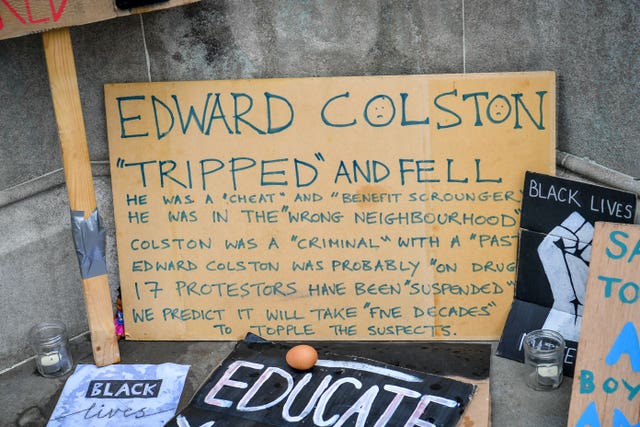 EDWARD COLSTON
"TRIPPED" AND FELL
HE WAS A "CHEAT" AND "BENEFIT SCROUNGER
HE WAS IN THE "WRONG NEIGHBOURHOOD"
COLSTON WAS A "CRIMINAL" WITH A "PAST
EDWARD COLSTON WAS PROBABLY "ON DRUG
17 PROTESTORS HAVE BEEN "SUSPENDED"
WE PREDICT IT WILL TAKE "FIVE DECADES"
TO TOPPLE THE SUSPECTS.
BLACK LIVES
TO
BOY
BLACK
lives
EDUCATE